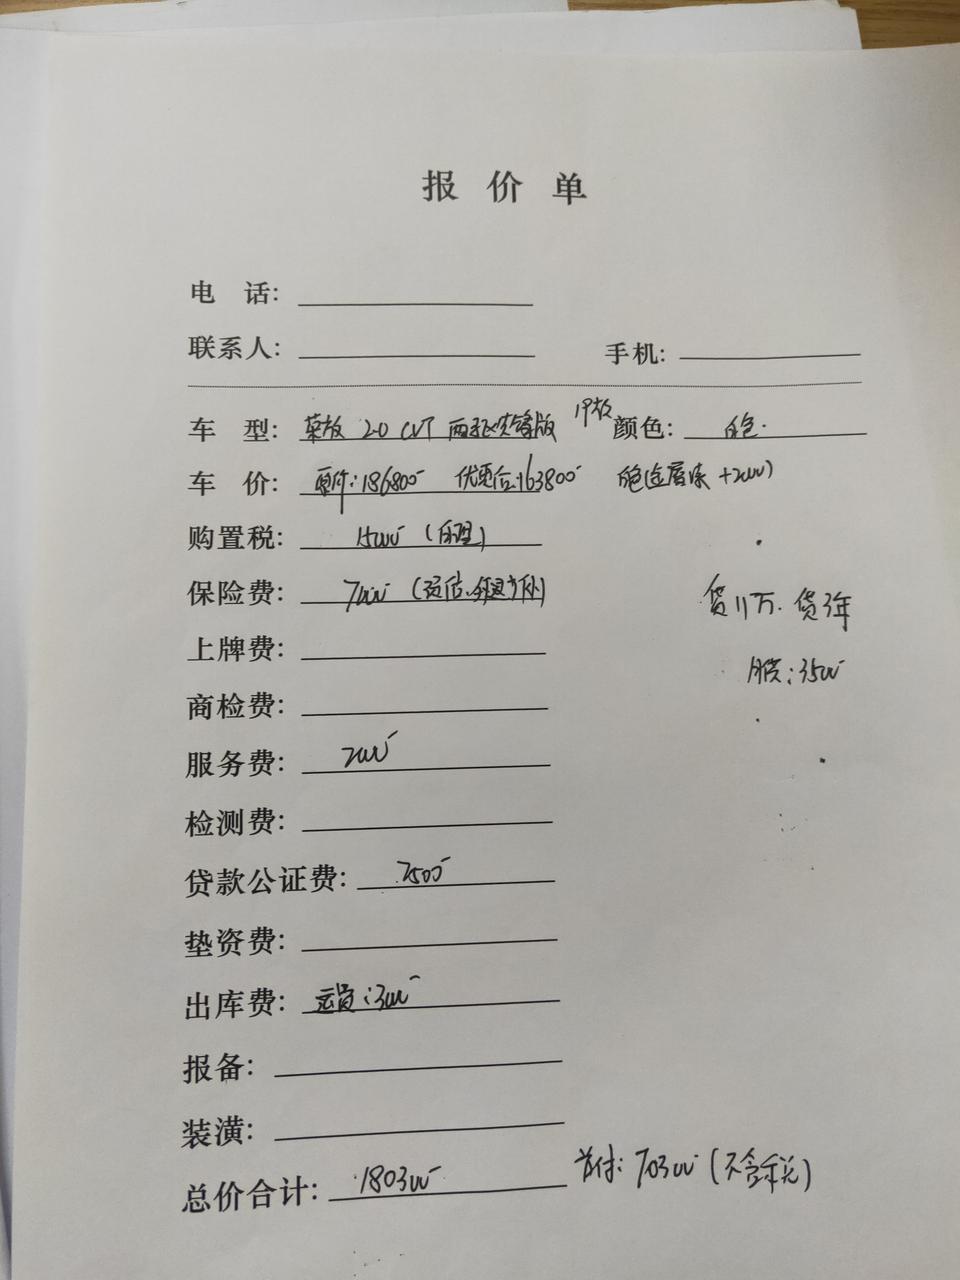 报 价 单
电 话:
联系人: 手机:
车 型: 荣放 2.0 CVT 两驱先锋版 19款 颜色: 白色.
车 价: 原价:186800 优惠后:163800 白色(金属漆 +2000)
购置税: 15000 (自理)
保险费: 7000
上牌费:
商检费:
服务费: 2000
检测费:
贷款公证费: 7500
垫资费:
出库费: 运费:3000
报备:
装潢:
总价合计: 180300 首付: 70300 (不含税)
贷11万. 贷3年
月供:3500